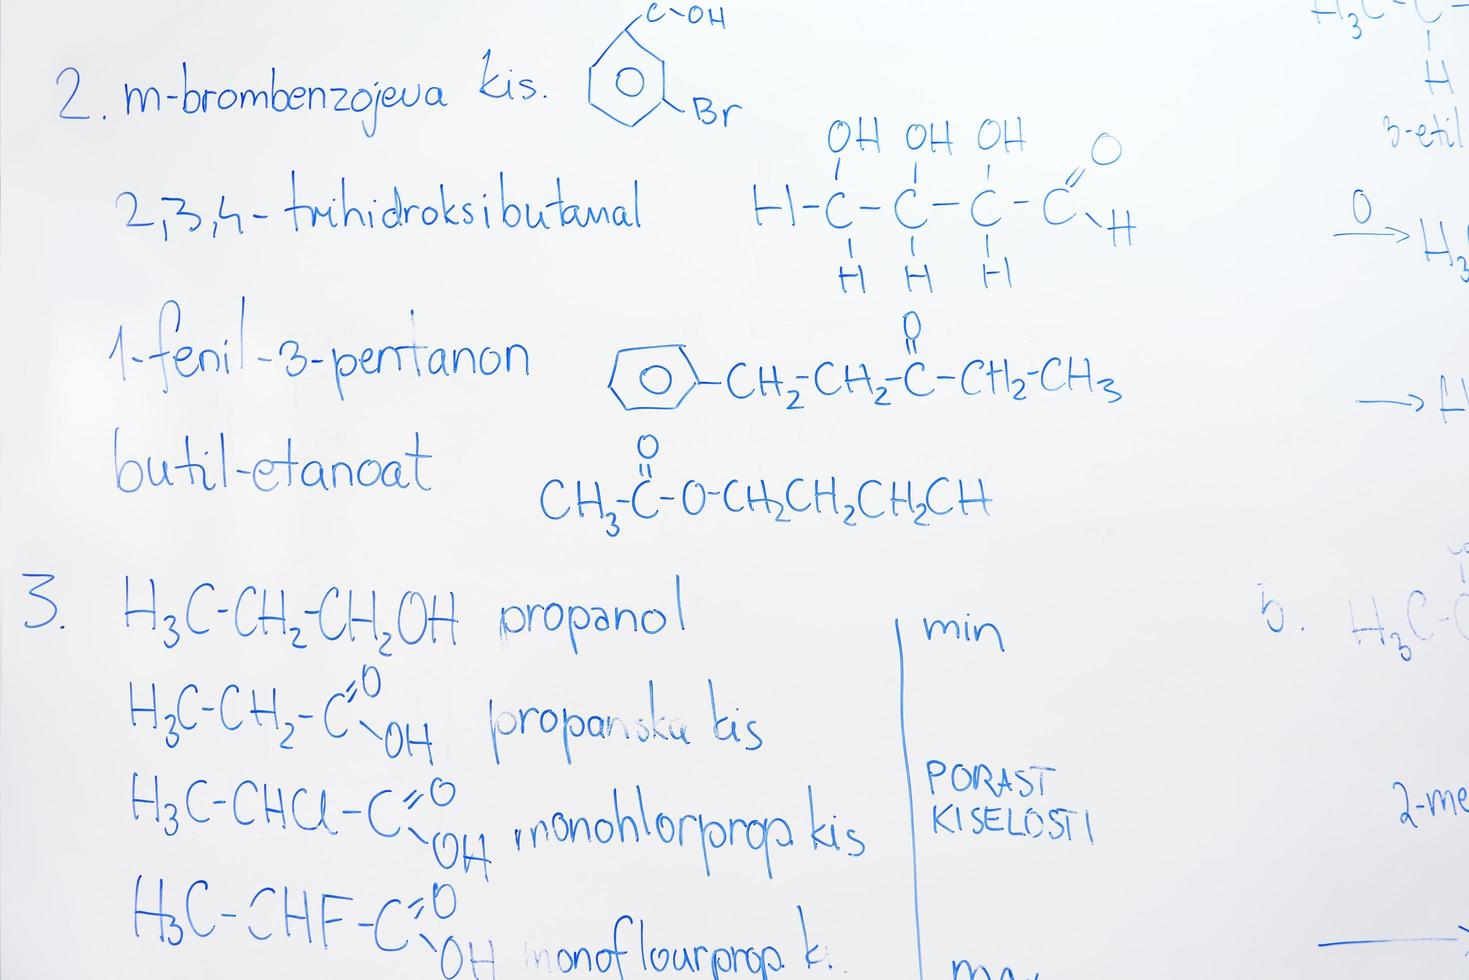 C-OH
2. m-brombenzojeva kis.
Br
OH OH OH O
2,3,4-trihidroksibutanal H-C-C-C-C
H
H H H
O
1-fenil-3-pentanon O-CH2-CH2-C-CH2-CH3
O
butil-etanoat CH3-C-O-CH2CH2CH2CH
3. H3C-CH2-CH2OH propanol
H3C-CH2-C=O OH propanska kis
H3C-CHCl-C=O OH monohlorprop. kis
H3C-CHF-C=O OH monoflourprop. k.
min
PORAST
KISELOSTI
H3C-C
H
3-etil
O
→ H3
→ H
5. H3C-
2-me
→